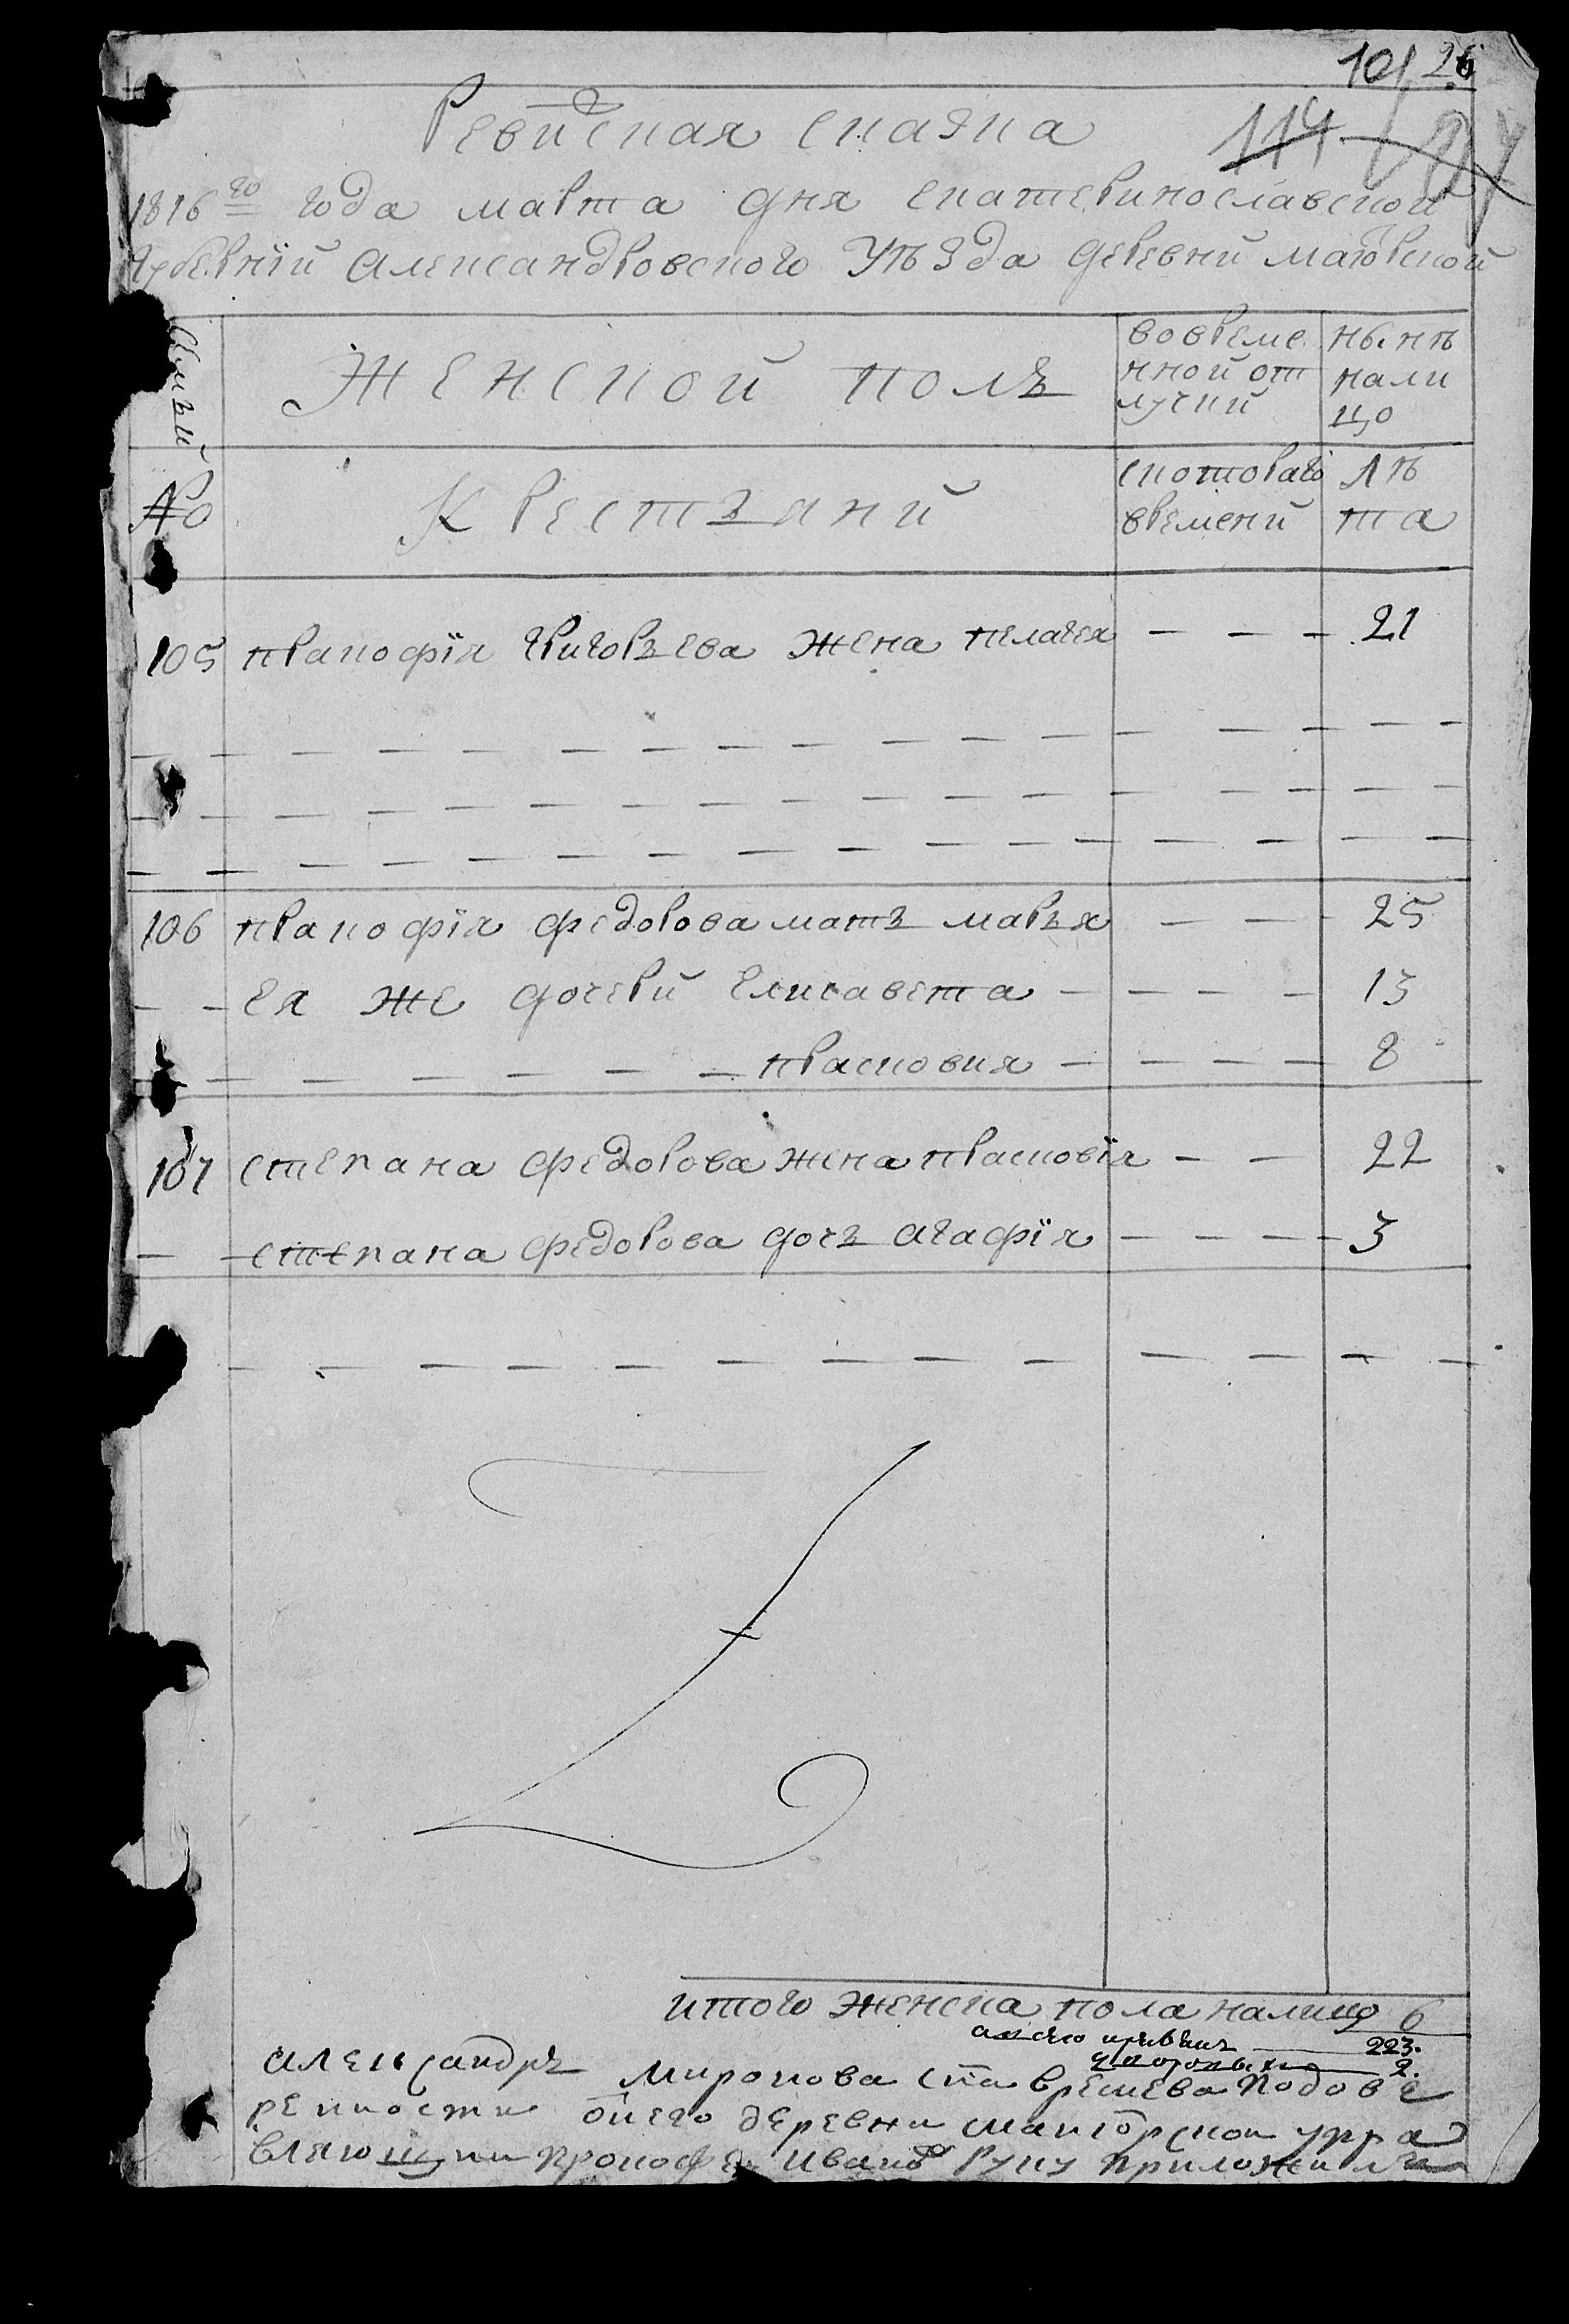 101 26
114
Ревизская сказка
1816го года марта дня екатеринославской
губернiй александровского уѣзда деревни маіорской
семьи
женской полъ
во време
нной от
лучки
нынѣ
нали
цо
№
крестъяни
скоторагo
времени
лѣ
та
105 пракофiя григоръева жена пелагея — — — 21
106 пракофiя федорова матъ маръя — — 25
— — ея же дочери елисавета — — — — 13
прасковия — — — — 8
107 степана федорова жена прасковiя — — 22
— степана федорова дочъ агафiя — — — — 3
итого женска пола налицо 6
223.
2.
александръ миронова сна времева подове
ренности онаго деревни маиорскои упра
вляющии прокофеи иванов руку приложилъ